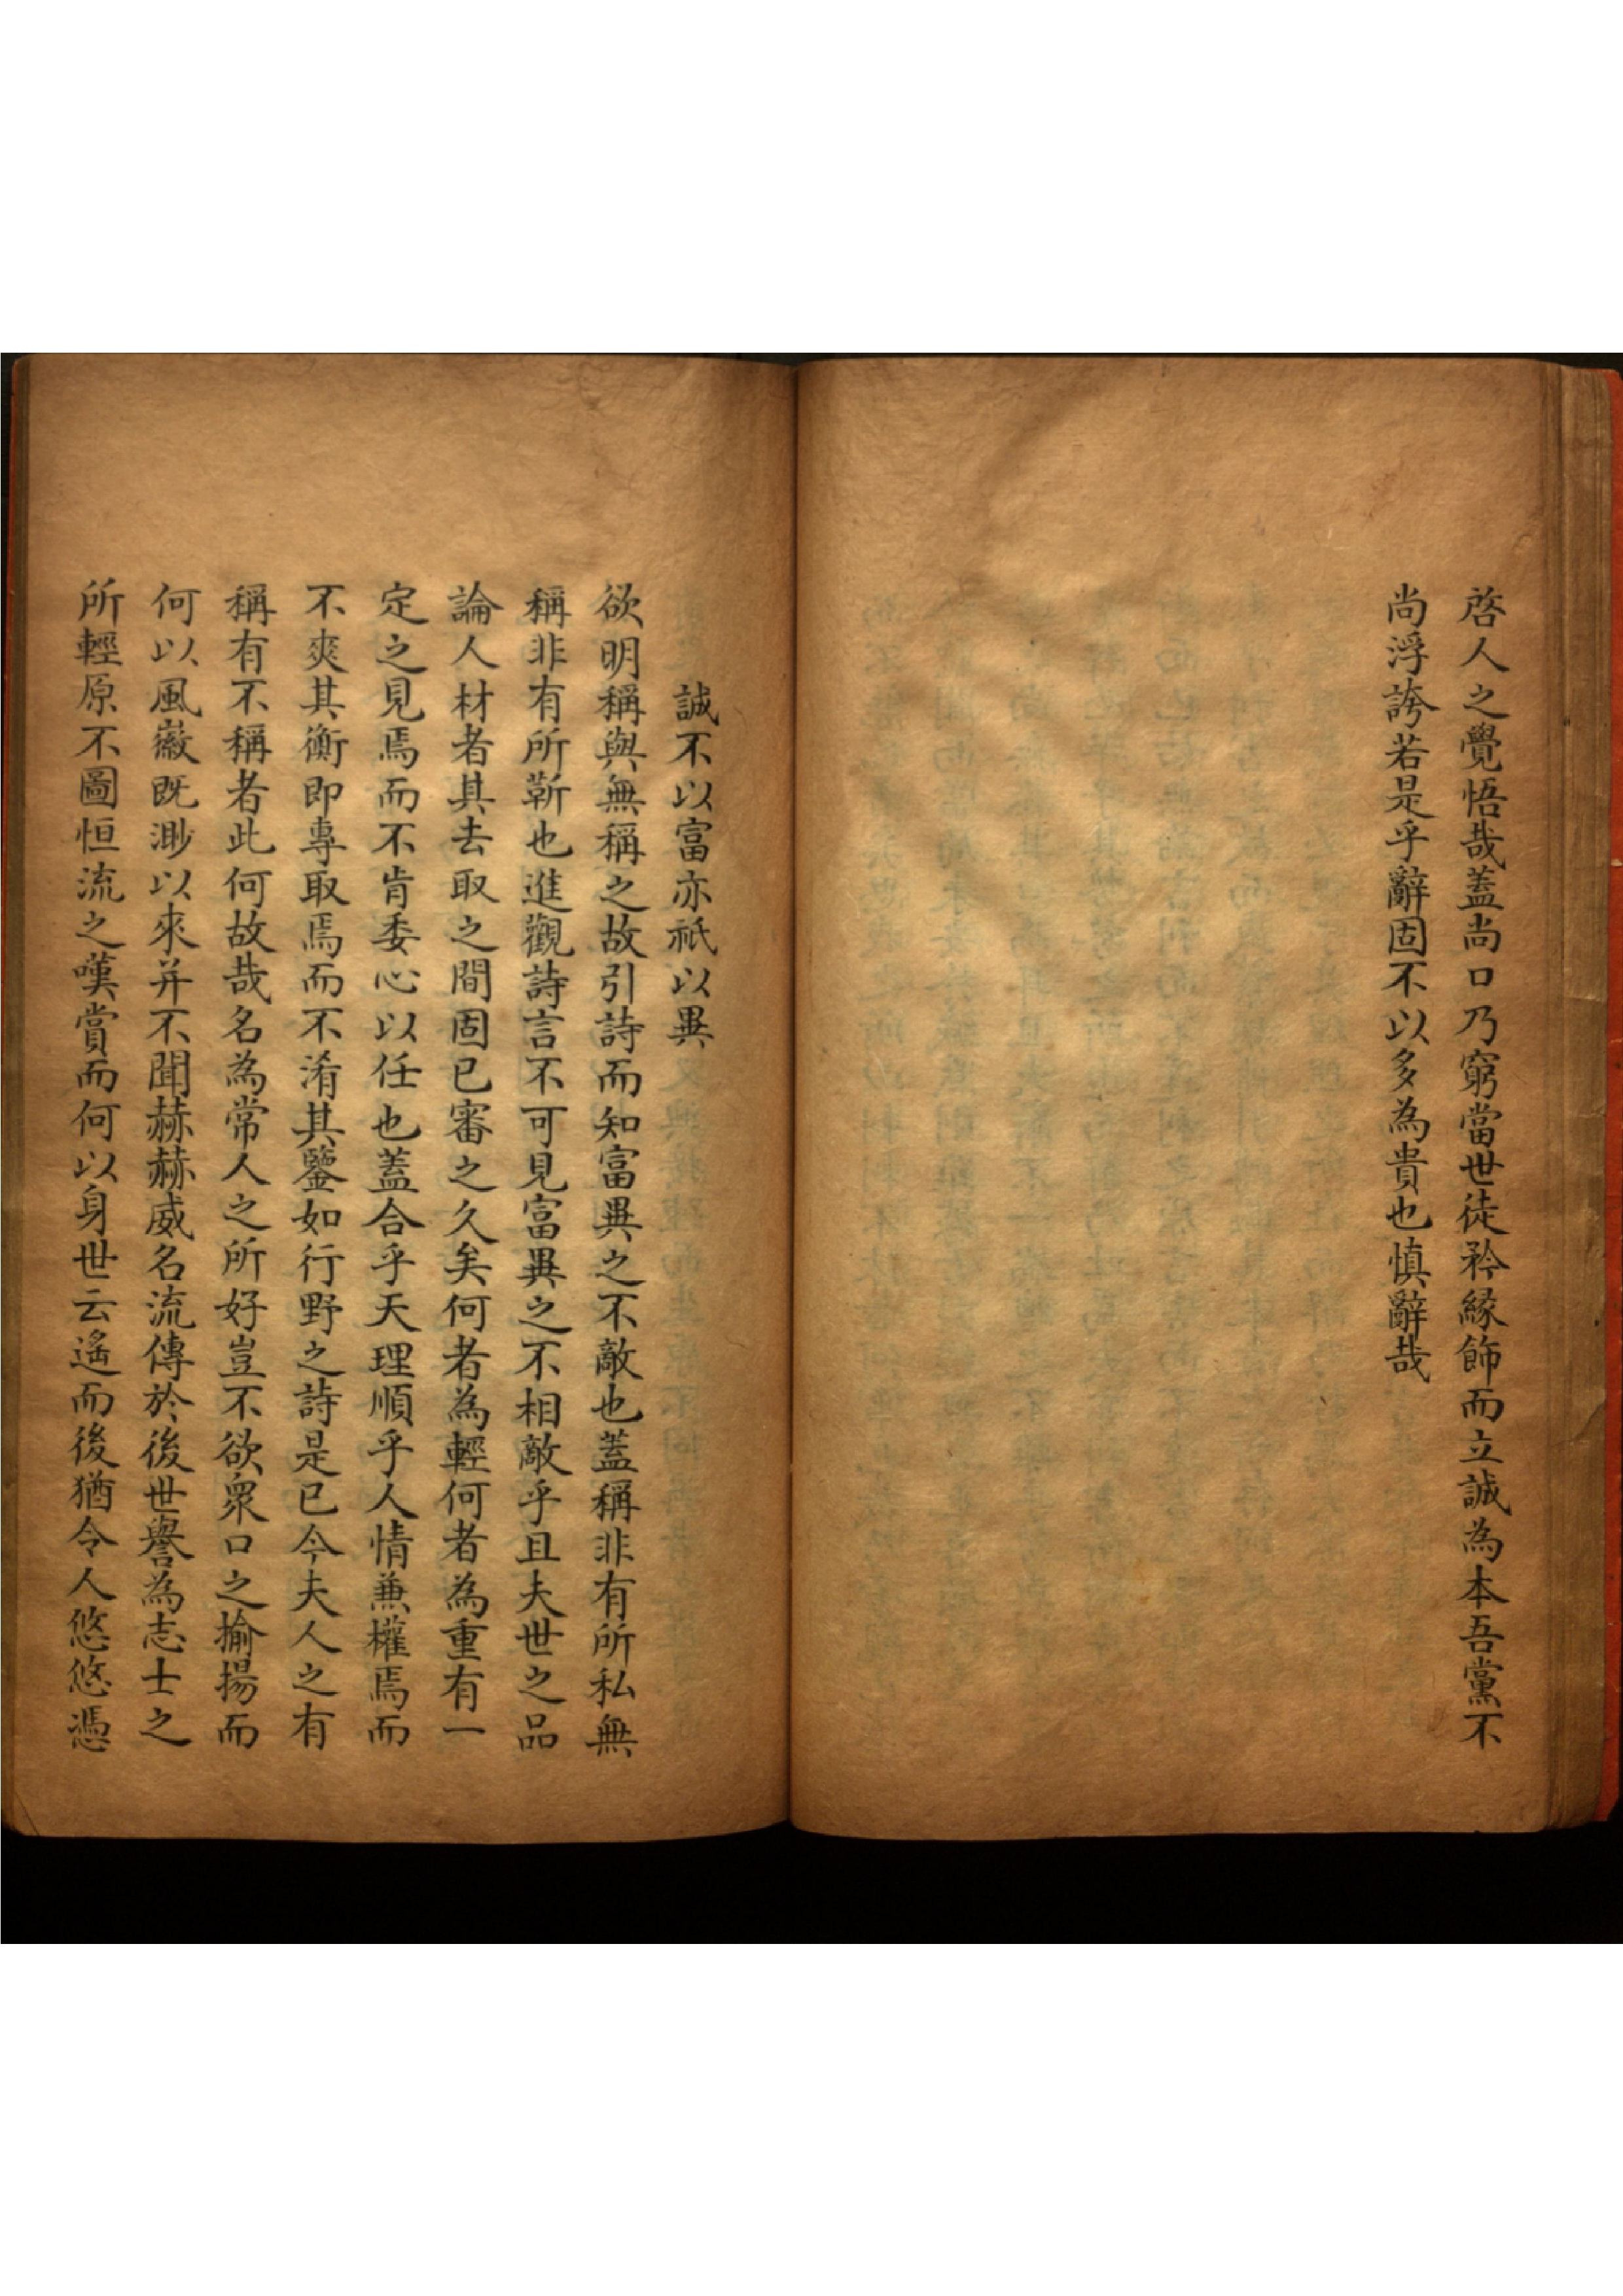 啓人之覺悟哉蓋尚口乃窮當世徒矜緣飾而立誠為本吾黨不
尚浮誇若是乎辭固不以多為貴也慎辭哉
誠不以富亦祇以異
欲明稱與無稱之故引詩而知富異之不敵也蓋稱非有所私無
稱非有所靳也進觀詩言不可見富異之不相敵乎且夫世之品
論人材者其去取之間固已審之久矣何者為輕何者為重有一
定之見焉而不肯委心以任也蓋合乎天理順乎人情兼權焉而
不爽其衡即專取焉而不淆其鑒如行野之詩是已今夫人之有
稱有不稱者此何故哉名為常人之所好豈不欲衆口之揄揚而
何以風徽既渺以來并不聞赫赫威名流傳於後世譽為志士之
所輕原不圖恒流之嘆賞而何以身世云遙而後猶令人悠悠憑